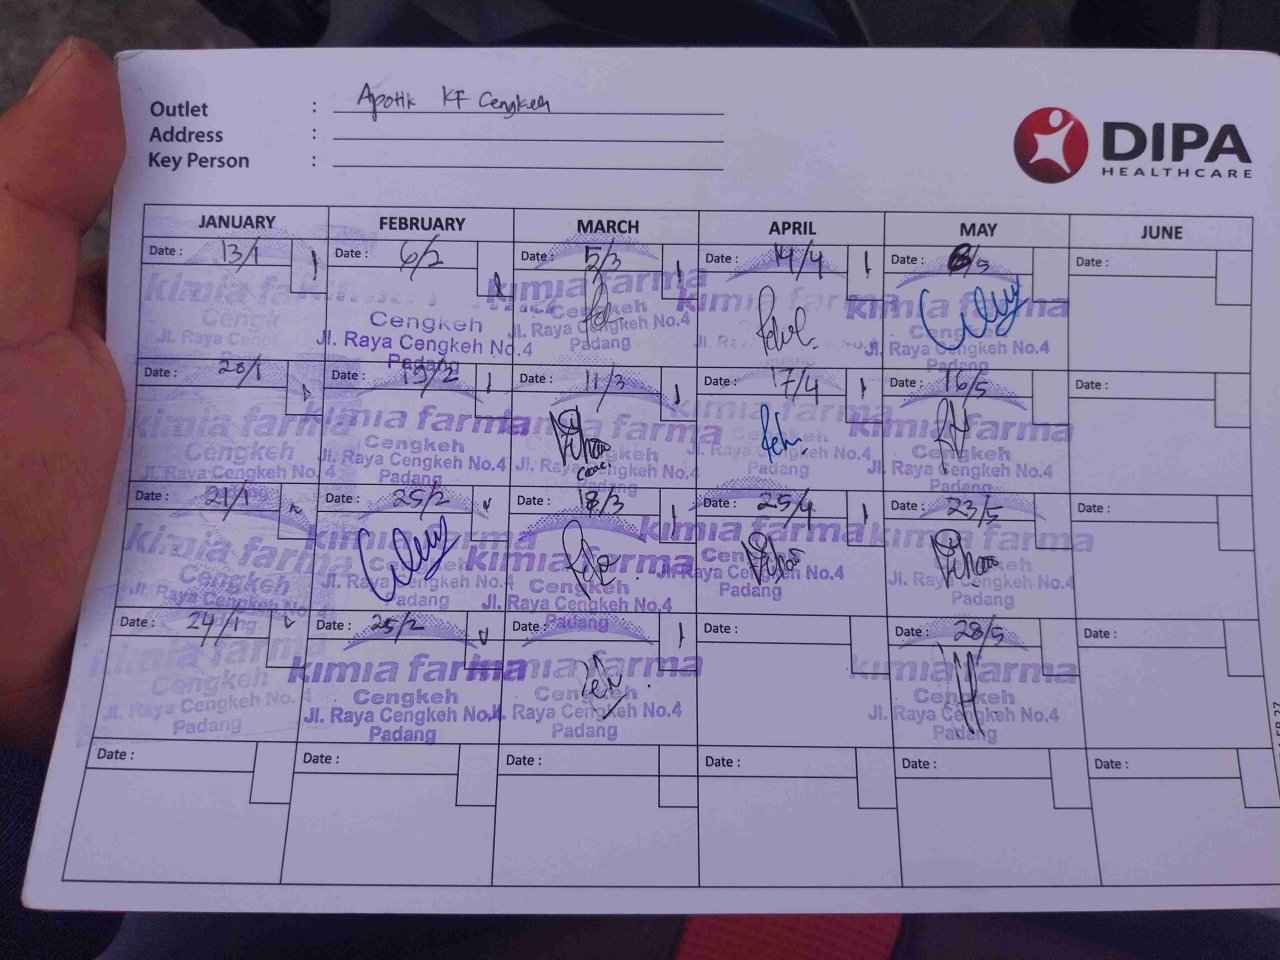 Outlet : Apotik KF Cengkeh
Address :
Key Person :
DIPA
HEALTHCARE
JANUARY FEBRUARY MARCH APRIL MAY JUNE
Date : 13/1 Date : 6/2 Date : 5/3 Date : 14/4 Date : 8/5 Date :
kimia farma kimia farma kimia farma kimia farma
Cengkeh Cengkeh Cengkeh Cengkeh
Jl. Raya Cengkeh Jl. Raya Cengkeh No.4 Jl. Raya Cengkeh No.4 Jl. Raya Cengkeh No.4
Padang Padang Padang
Date : Date : 19/2 Date : 11/3 Date : 17/4 Date : 16/5 Date :
kimia farma kimia farma kimia farma kimia farma kimia farma
Cengkeh Cengkeh Cengkeh Cengkeh Cengkeh
Jl. Raya Cengkeh No.4 Jl. Raya Cengkeh No.4 Jl. Raya Cengkeh No.4 Jl. Raya Cengkeh No.4 Jl. Raya Cengkeh No.4
Padang Padang Padang Padang
Date : 21/1 Date : 25/2 Date : 18/3 Date : 25/4 Date : 23/5 Date :
kimia farma kimia farma kimia farma kimia farma kimia farma
Cengkeh Cengkeh Cengkeh Cengkeh Cengkeh
Jl. Raya Cengkeh No.4 Jl. Raya Cengkeh No.4 Jl. Raya Cengkeh No.4 Jl. Raya Cengkeh No.4 Jl. Raya Cengkeh No.4
Padang Padang Padang Padang Padang
Date : 24/1 Date : 25/2 Date : Date : Date : 28/5 Date :
kimia farma kimia farma kimia farma kimia farma
Cengkeh Cengkeh Cengkeh Cengkeh
Jl. Raya Cengkeh No.4 Jl. Raya Cengkeh No.4 Jl. Raya Cengkeh No.4 Jl. Raya Cengkeh No.4
Padang Padang Padang Padang
Date : Date : Date : Date : Date : Date :